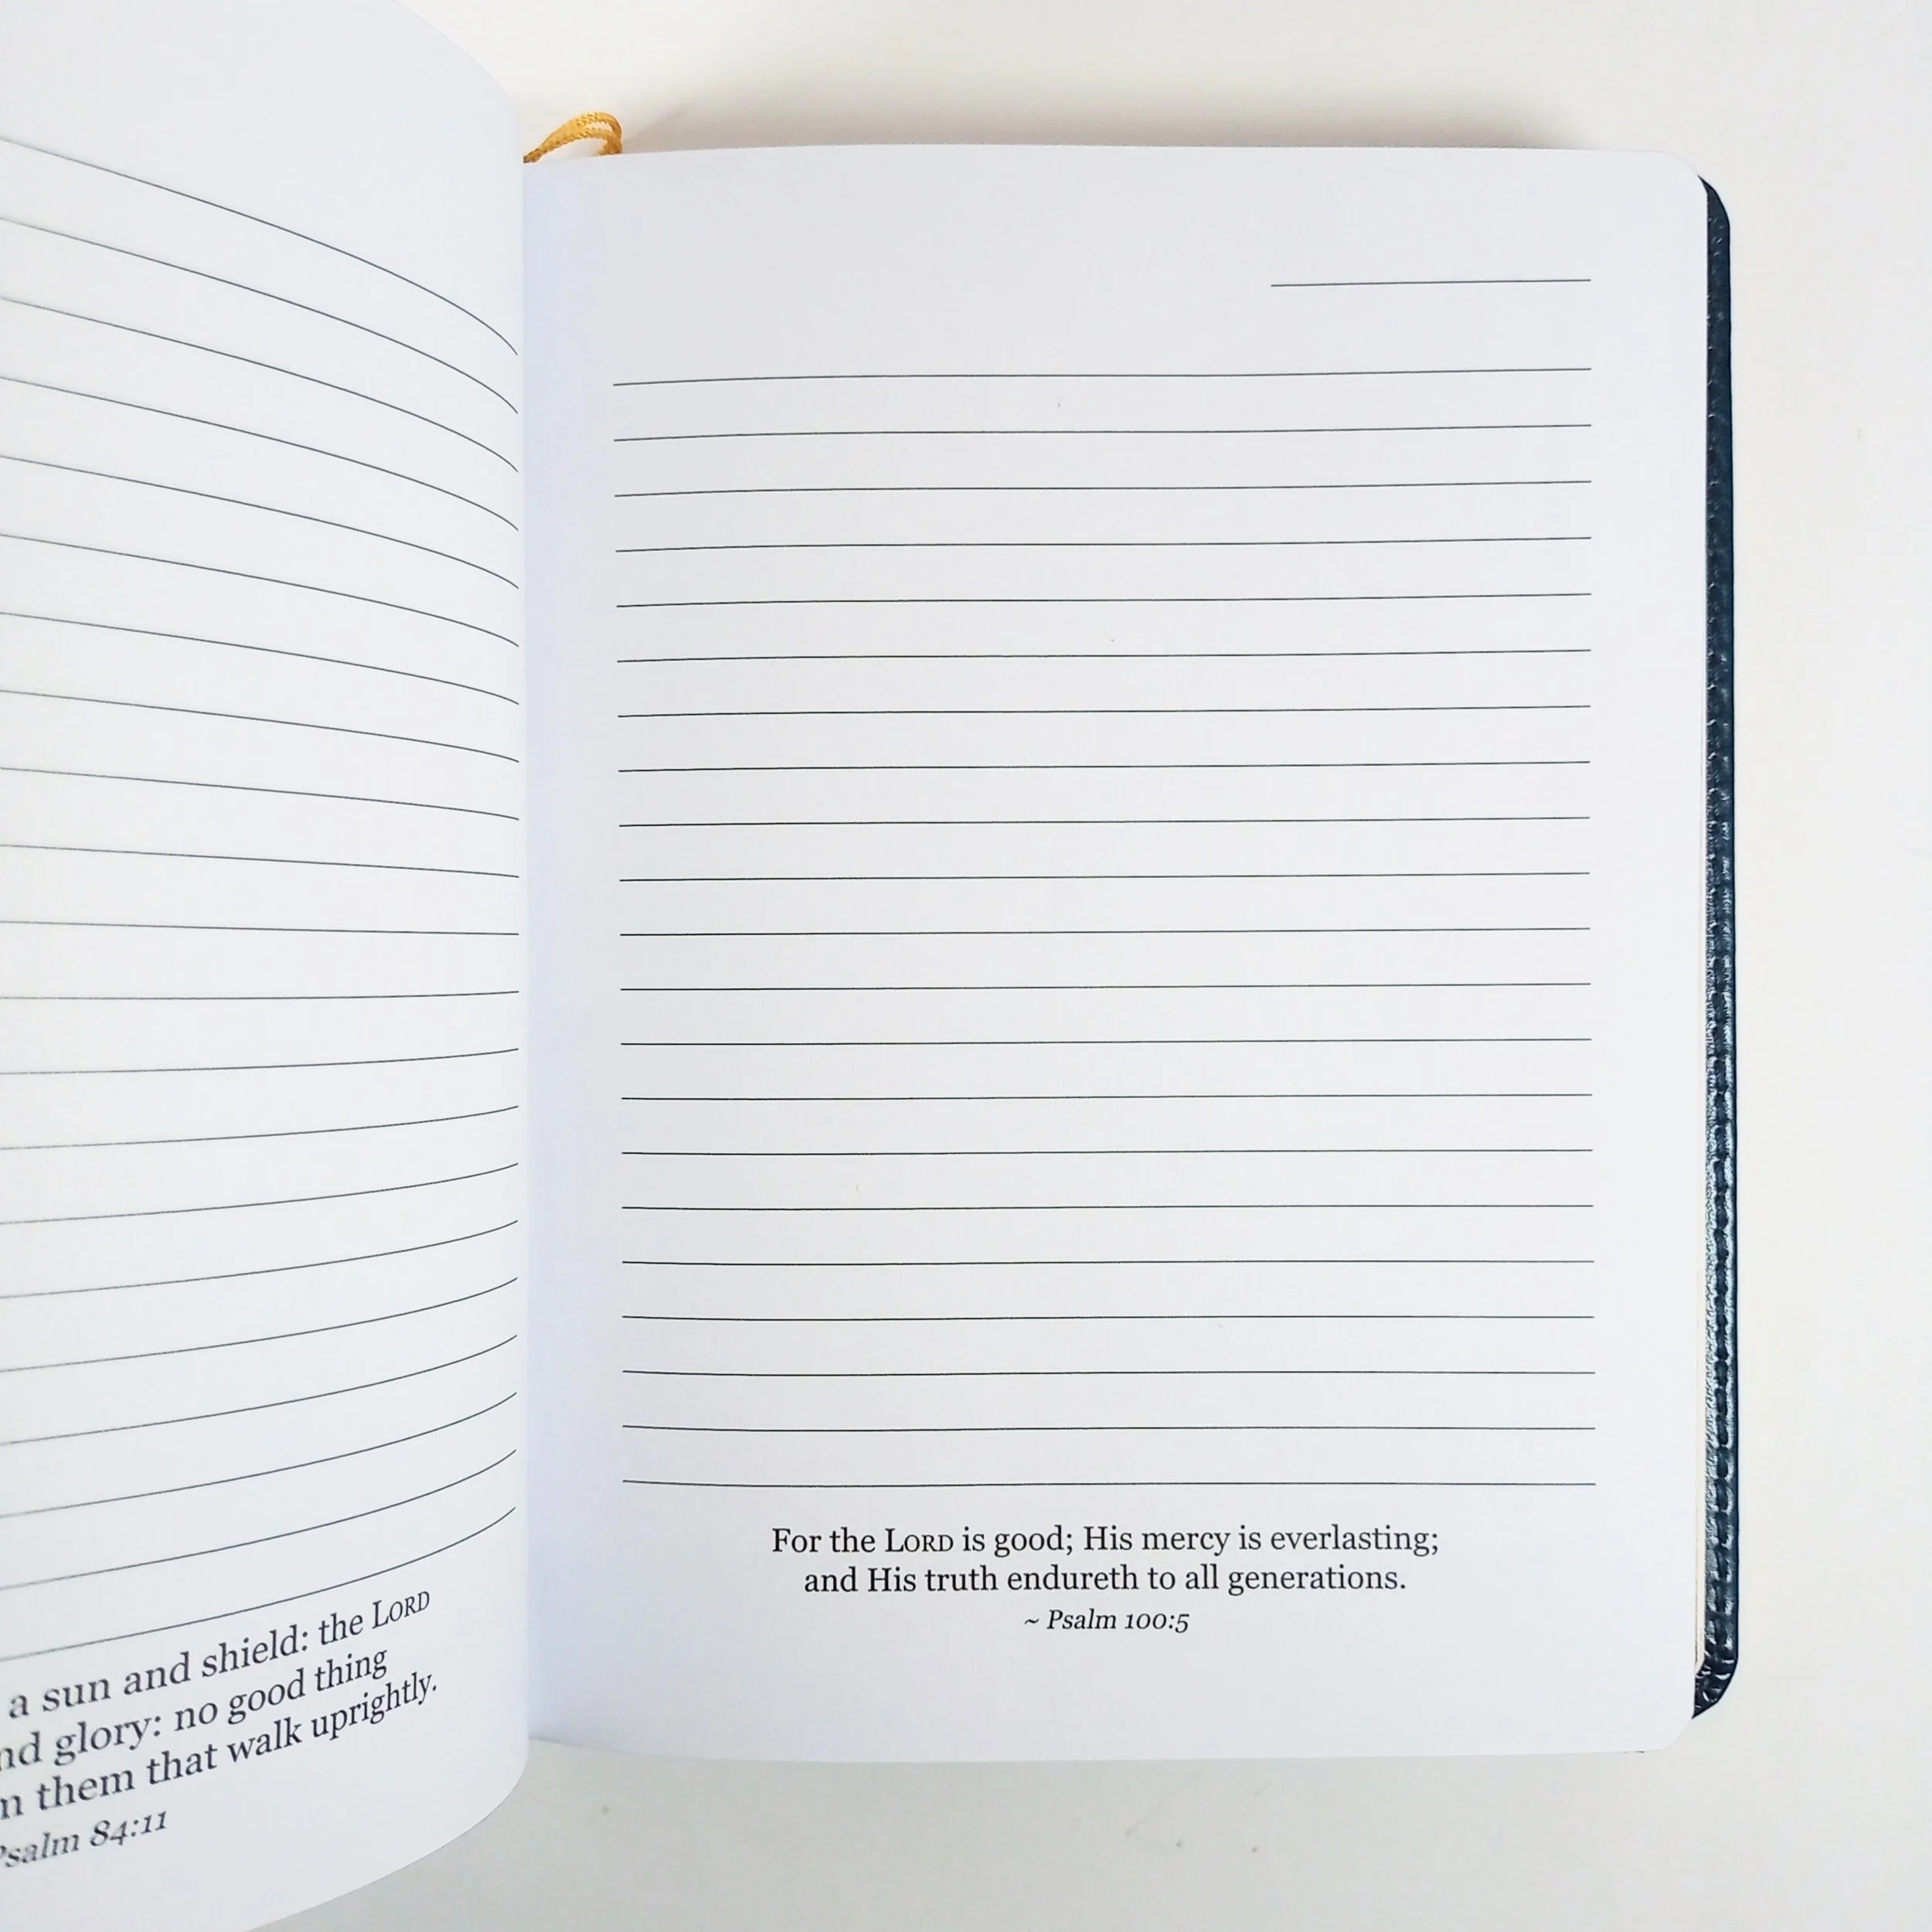 a sun and shield: the LORD
glory: no good thing
them that walk uprightly.
Psalm 84:11
For the LORD is good; His mercy is everlasting;
and His truth endureth to all generations.
~ Psalm 100:5